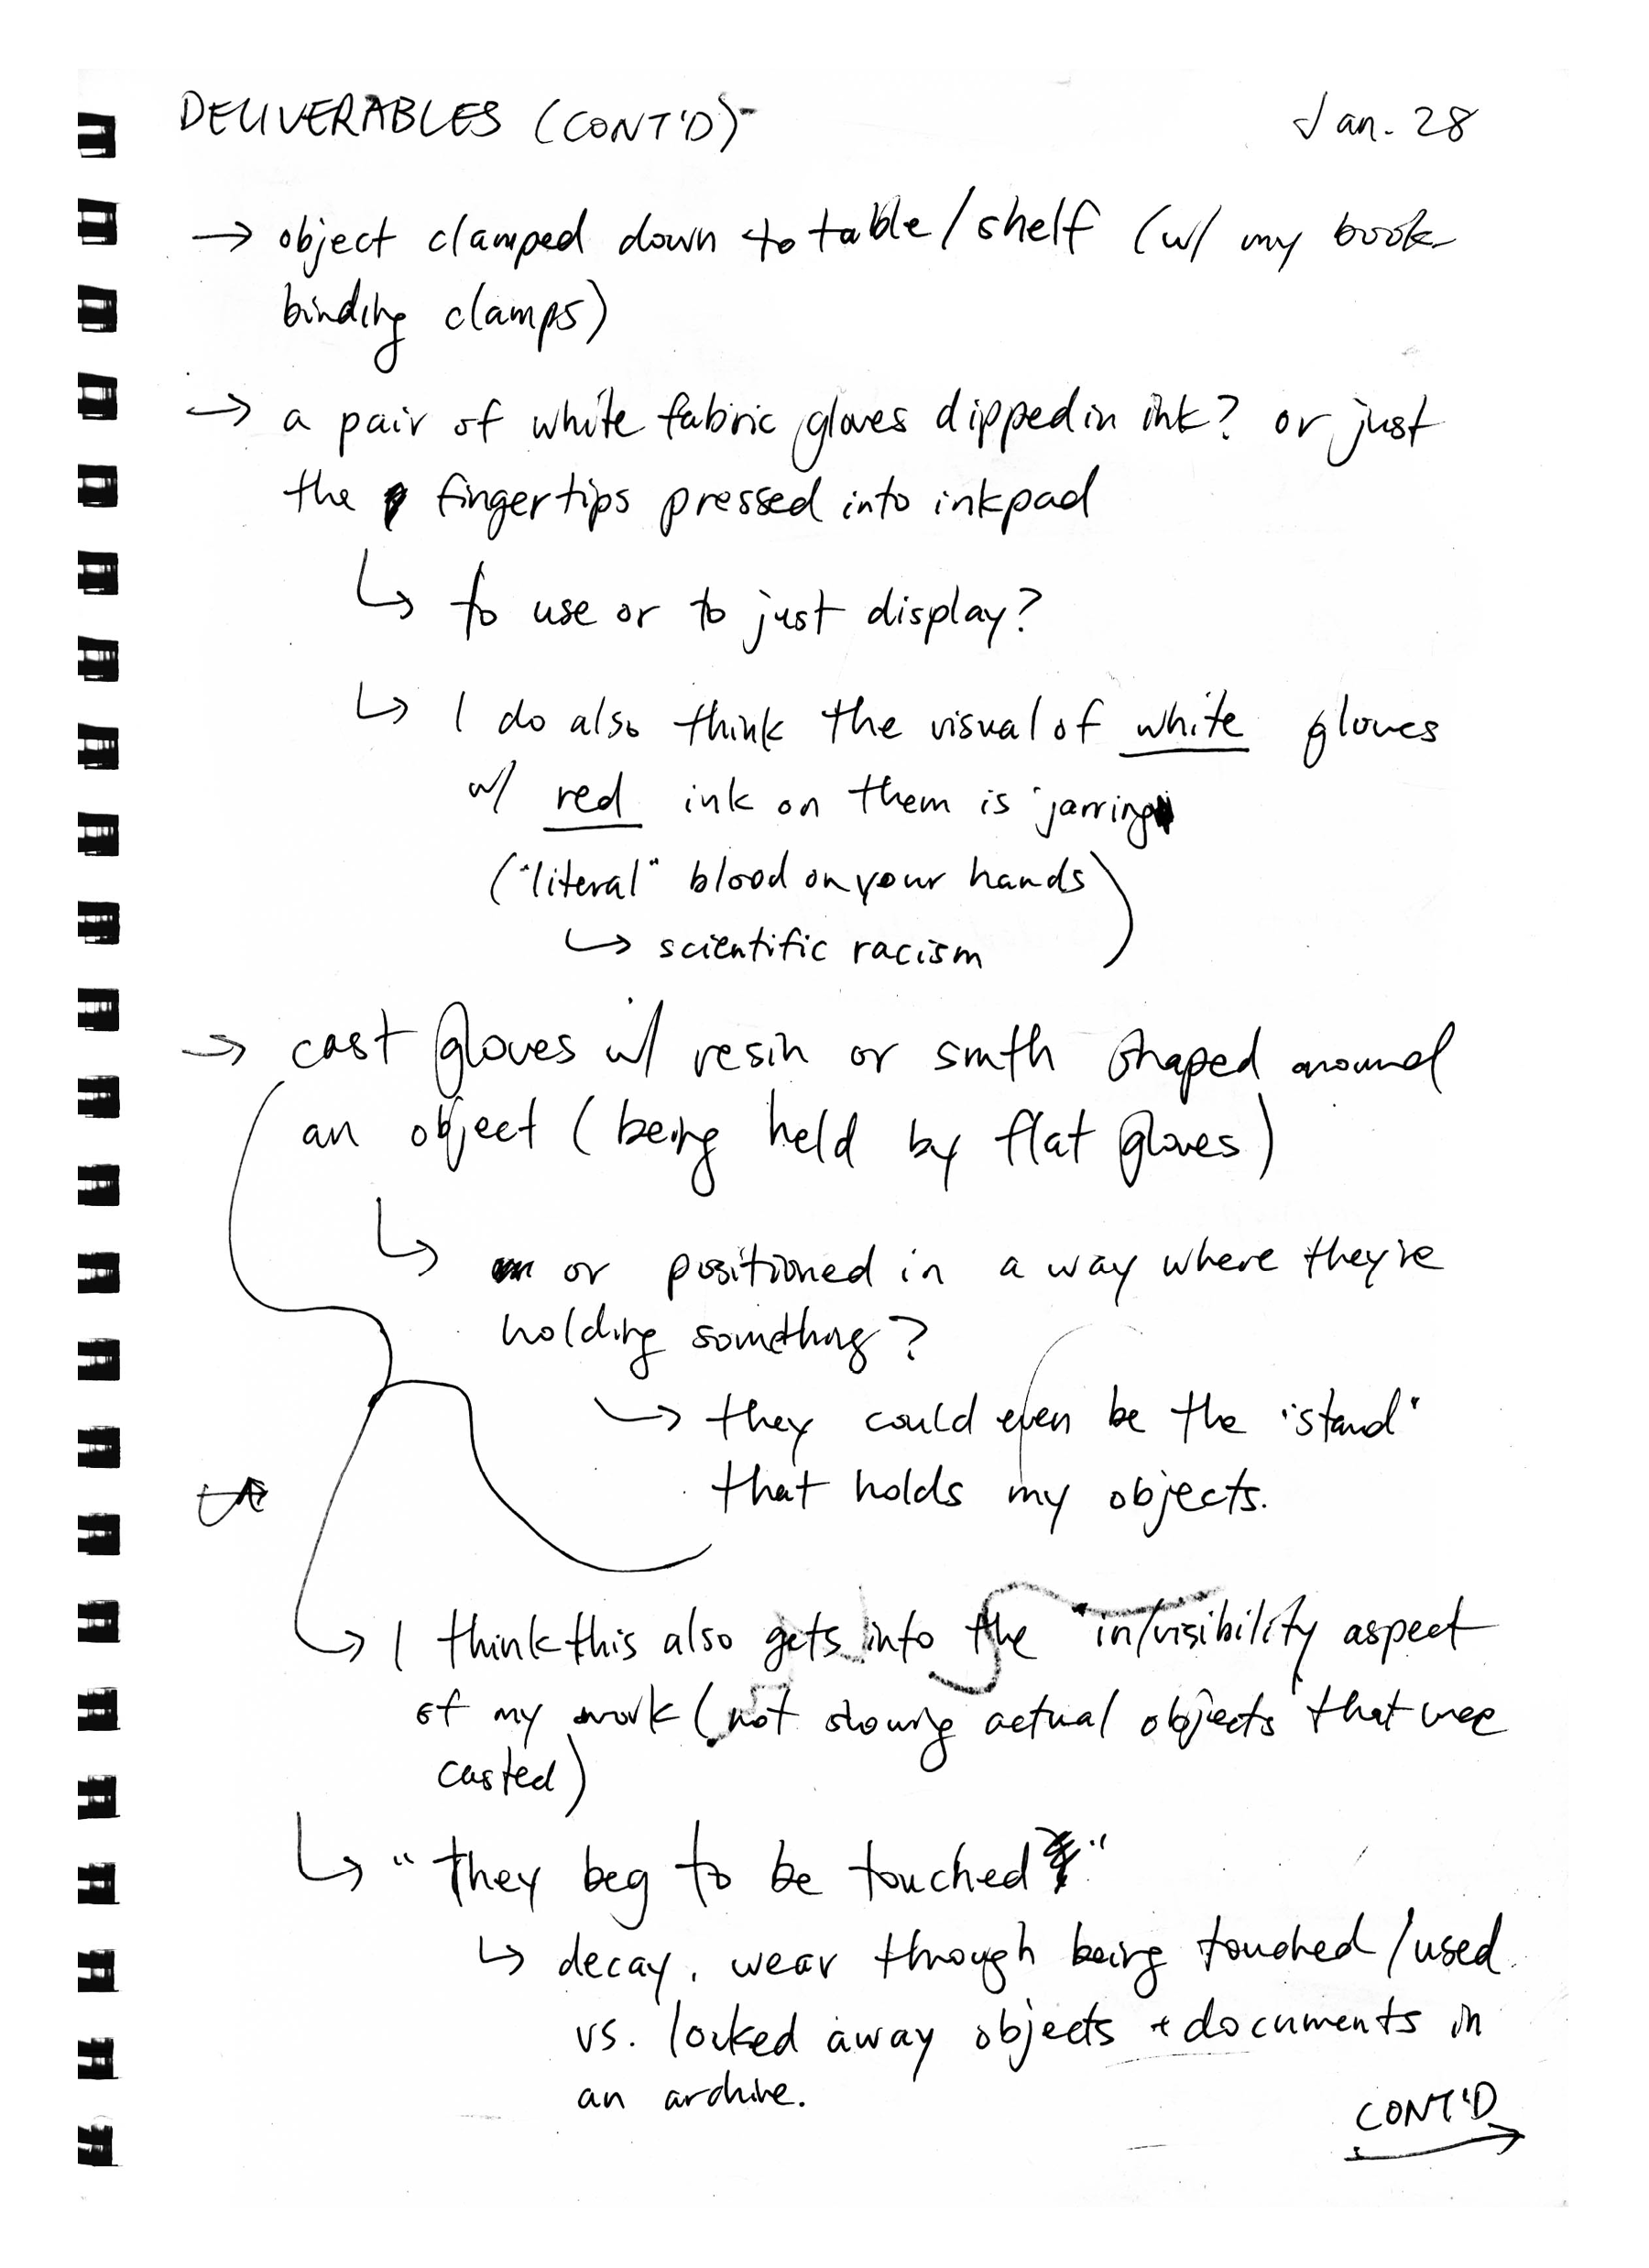 DELIVERABLES (CONT'D)
Jan. 28
→ object clamped down to table/shelf (w/ my book-
binding clamps)
→ a pair of white fabric gloves dipped in ink? or just
the fingertips pressed into inkpad
↳ to use or to just display?
↳ I do also think the visual of white gloves
w/ red ink on them is jarring
("literal" blood on your hands
↳ scientific racism)
→ cast gloves w/ resin or smth shaped around
an object (being held by flat gloves)
↳ or positioned in a way where they're
holding something?
↳ they could even be the "stand"
that holds my objects.
↳ I think this also gets into the "in/visibility" aspect
of my work (not showing actual objects that were
casted)
↳ "they beg to be touched"
↳ decay, wear through being touched/used
vs. locked away objects + documents in
an archive.
CONT'D →